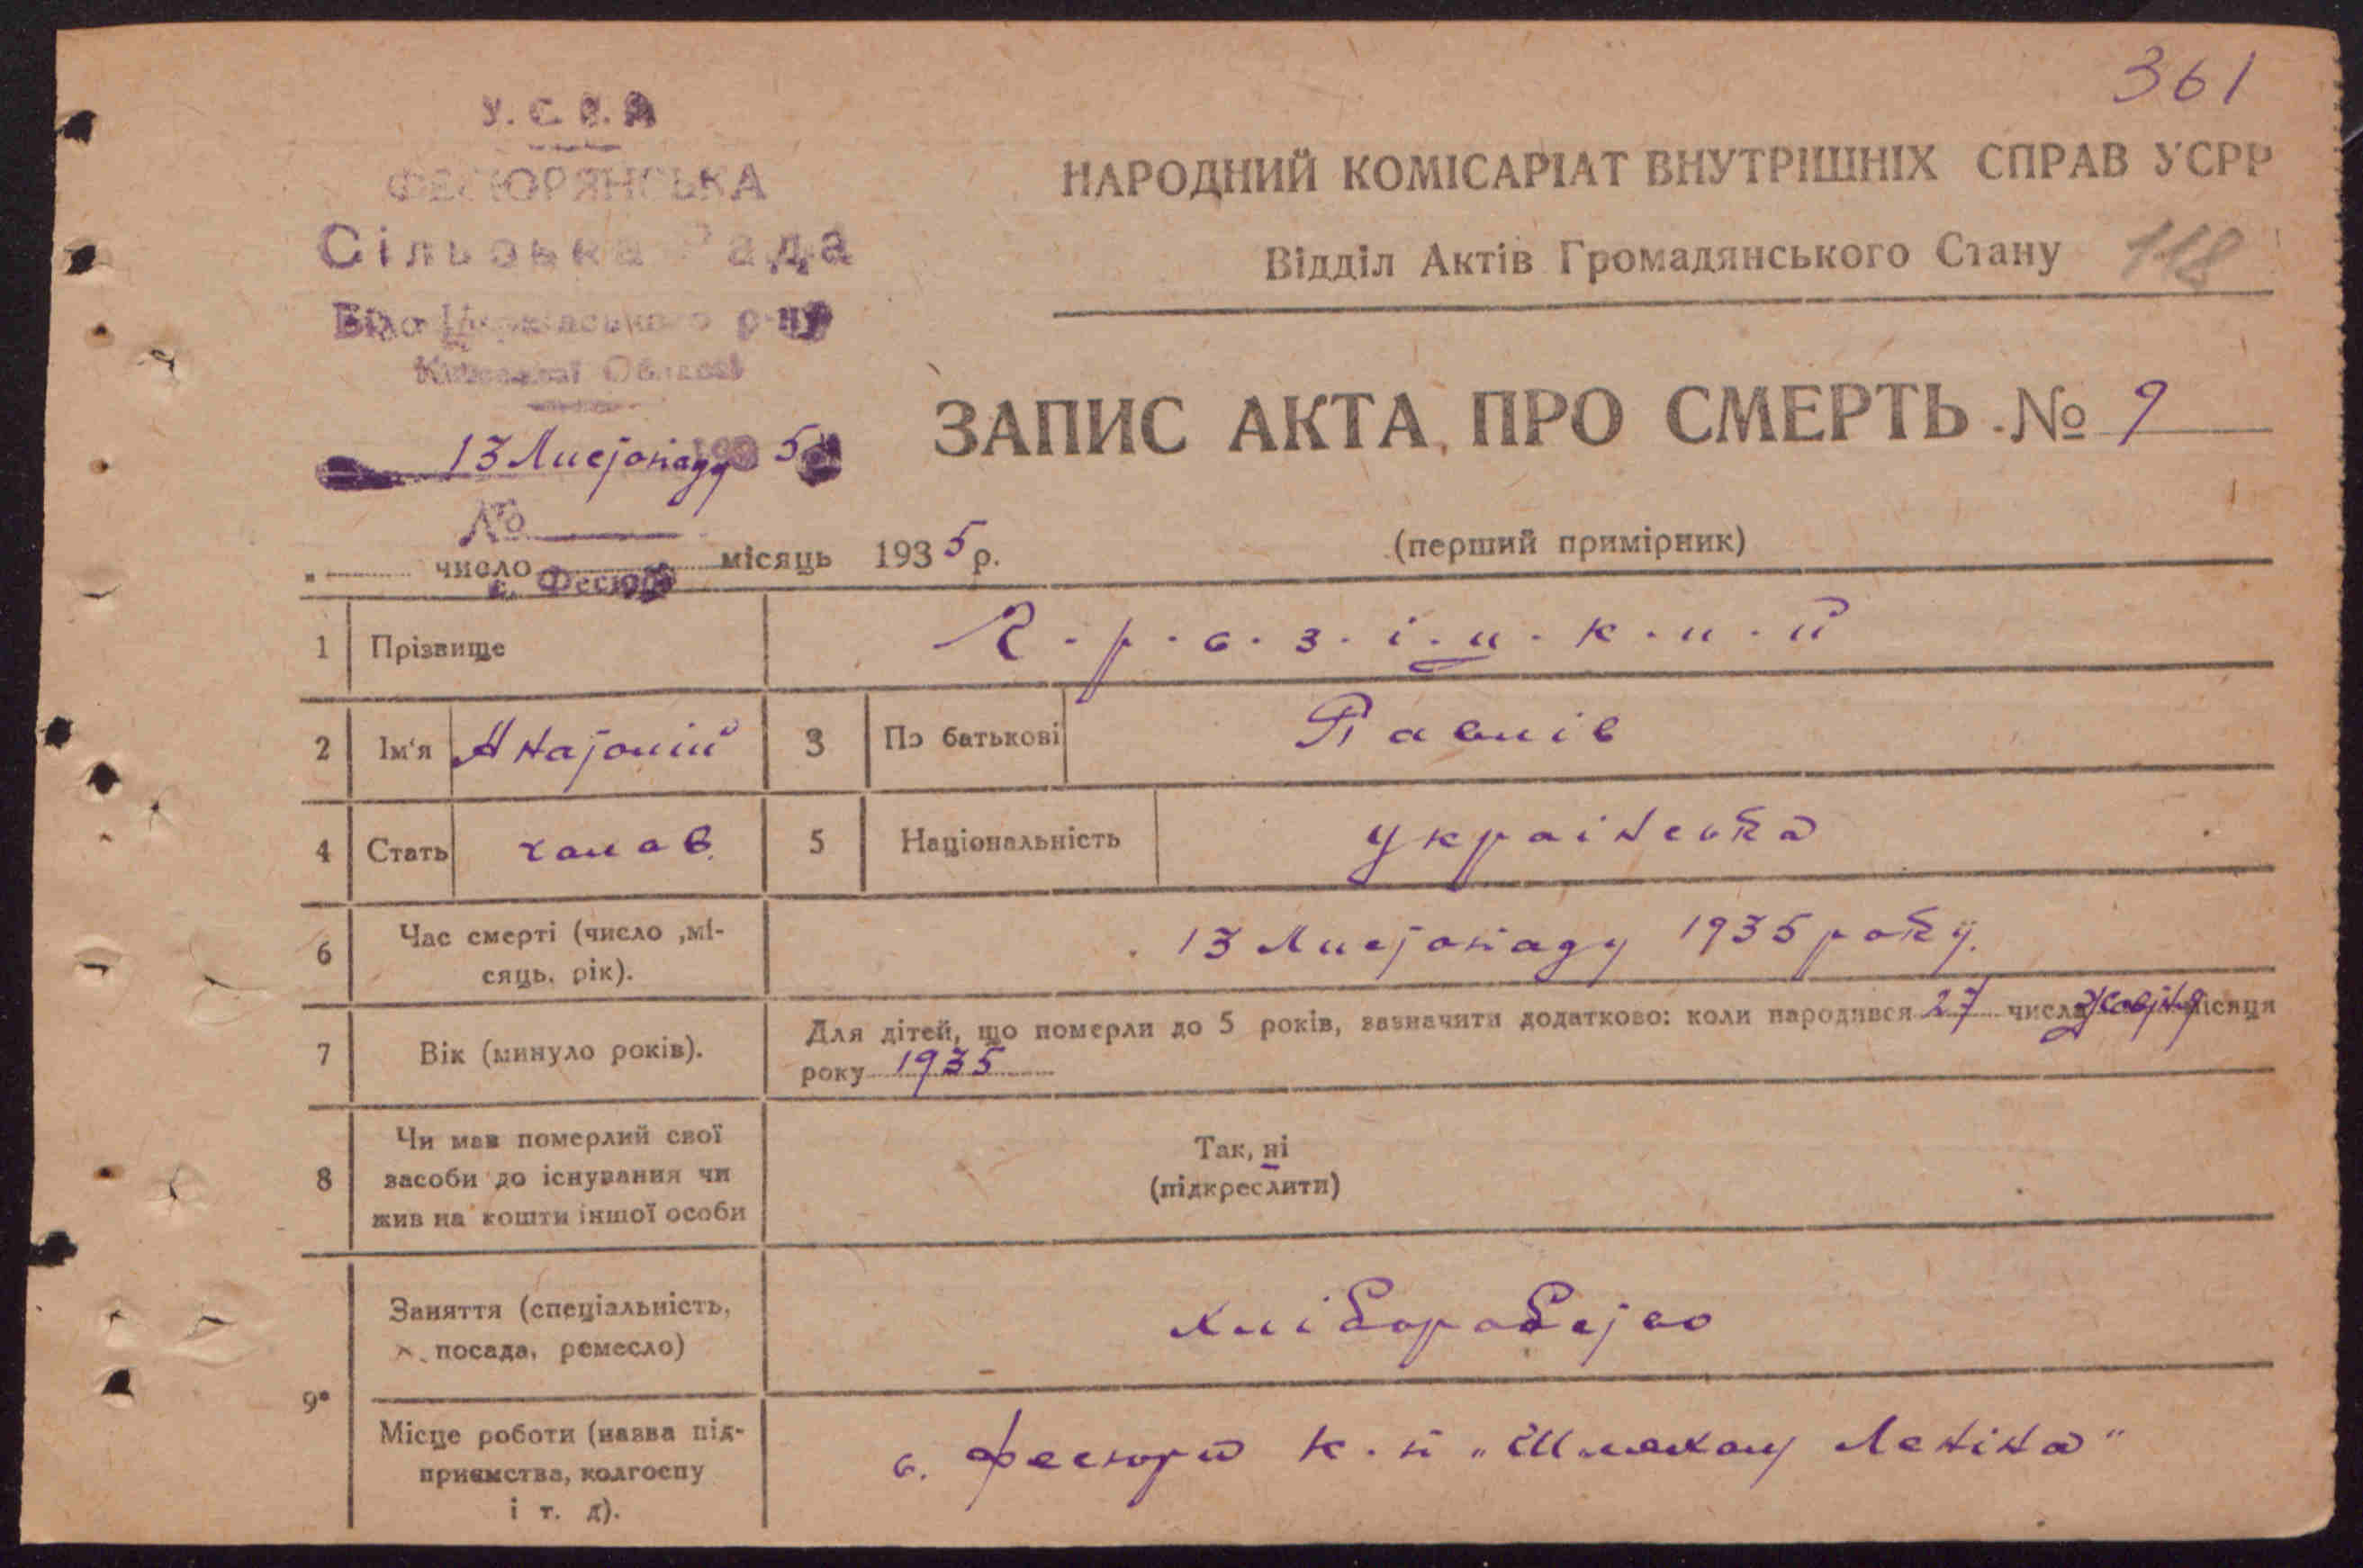 361
У.С.Р.Р
ФЕСЮРЯНСЬКА
Сільська Рада
Біло-Церківського р-ну
Київської Області
13 Листопаду 1935
№
с. Фесюри
НАРОДНИЙ КОМІСАРІАТ ВНУТРІШНІХ СПРАВ УСРР
Відділ Актів Громадянського Стану 118
ЗАПИС АКТА ПРО СМЕРТЬ № 9
(перший примірник)
„ число місяць 1935 р.
1 Прізвище
2 Ім'я Анатолій 3 По батькові Павлів
4 Стать чолов. 5 Національність Українська
6 Час смерті (число ,мі-
сяць, рік). 13 Листопаду 1935 року.
7 Вік (минуло років). Для дітей, що померли до 5 років, зазначити додатково: коли народився 27 числа Жовтня місяця
року 1935
8 Чи мав померлий свої
засоби до існування чи
жив на кошти іншої особи
Так, ні
(підкреслити)
9* Заняття (спеціальність,
посада, ремесло) хліборобство
Місце роботи (назва під-
приємства, колгоспу
і т. д). с. Фесюри к.п „Шляхом Леніна"